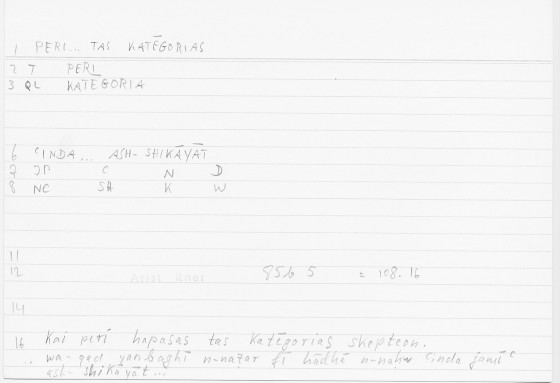 1 PERI... TAS KATĒGORIAS
2 T PERI
3 QL KATEGORIA
6 ʿINDA... ASH-SHIKĀYĀT
7 JP ʿ N D
8 NC SH K W
11
12 85b 5 = 108.16
14
16 Kai peri hapasas tas katēgorias skepteon.
.. wa-qad yanbaghī n-naẓar fī hādhā n-naḥw ʿinda jamīʿ
ash-shikāyāt...